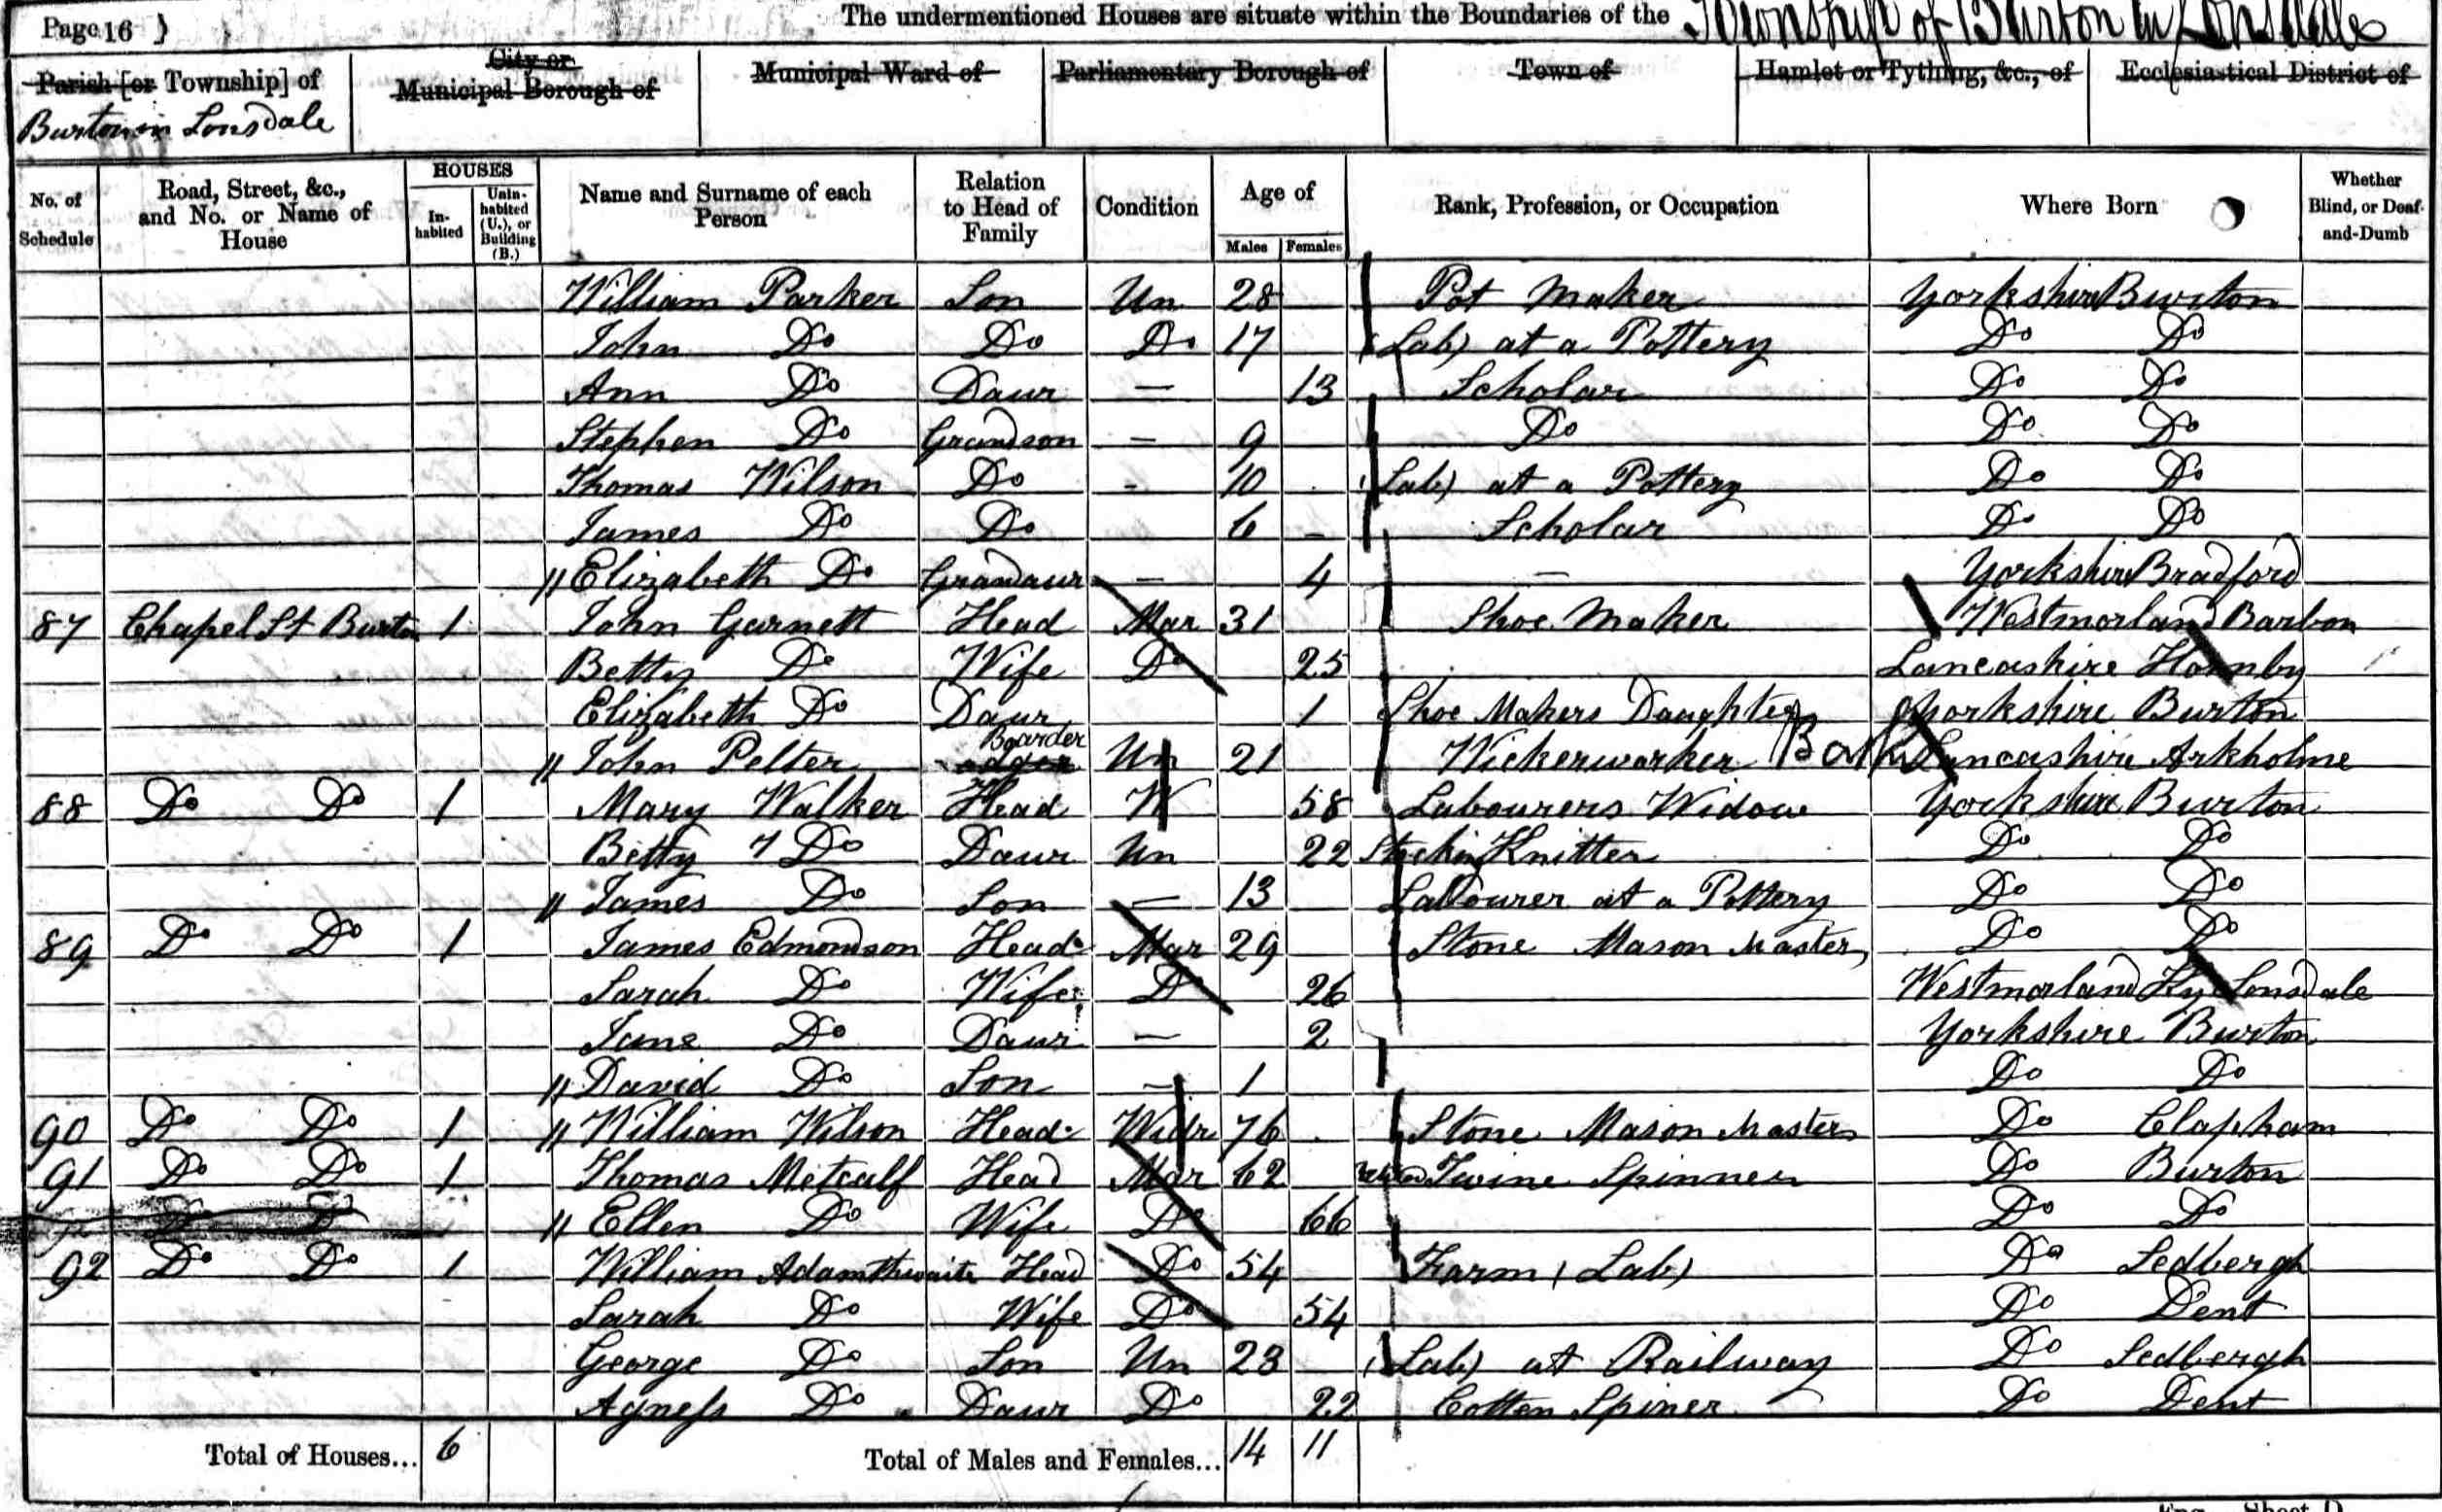 Page 16 } The undermentioned Houses are situate within the Boundaries of the Township of Burton in Lonsdale
Parish [or Township] of City or Municipal Borough of Municipal Ward of Parliamentary Borough of Town of Hamlet or Tything, &c., of Ecclesiastical District of
Burton in Lonsdale
No. of Schedule Road, Street, &c., and No. or Name of House HOUSES Inhabited Uninhabited (U.), or Building (B.) Name and Surname of each Person Relation to Head of Family Condition Age of Males Females Rank, Profession, or Occupation Where Born Whether Blind, or Deaf-and-Dumb
William Parker Son Un 28 Pot Maker Yorkshire Burton
John Do Do Do 17 (Lab) at a Pottery Do Do
Ann Do Daur — 13 Scholar Do Do
Stephen Do Grandson — 9 Do Do Do
Thomas Wilson Do - 10 (Lab) at a Pottery Do Do
James Do Do 6 - Scholar Do Do
// Elizabeth Do Grandaur — 4 — Yorkshire Bradford
87 Chapel St Burton 1 John Garnett Head Mar 31 Shoe Maker Westmorland Barbon
Betty Do Wife Do 25 Lancashire Hornby
Elizabeth Do Daur 1 Shoe Makers Daughter Yorkshire Burton
// John Pelter Boarder Un 21 Wickerworker Bask Lancashire Arkholme
88 Do Do 1 Mary Walker Head W 58 Labourers Widow Yorkshire Burton
Betty 7 Do Daur Un 22 Stocking Knitter Do Do
// James Do Son — 13 Labourer at a Pottery Do Do
89 Do Do 1 James Edmondson Head Mar 29 Stone Mason Master Do Do
Sarah Do Wife Do 26 Westmorland Ky Lonsdale
Jane Do Daur — 2 Yorkshire Burton
// David Do Son — 1 Do Do
90 Do Do 1 // William Wilson Head Widr 76 Stone Mason Master Do Clapham
91 Do Do 1 Thomas Metcalf Head Mar 62 Twine Spinner Do Burton
// Ellen Do Wife Do 66 Do Do
92 Do Do 1 William Adamthwaite Head Do 54 Farm (Lab) Do Sedbergh
Sarah Do Wife Do 54 Do Dent
George Do Son Un 23 (Lab) at Railway Do Sedbergh
Agness Do Daur Do 22 Cotten Spiner Do Dent
Total of Houses... 6 Total of Males and Females... 14 11